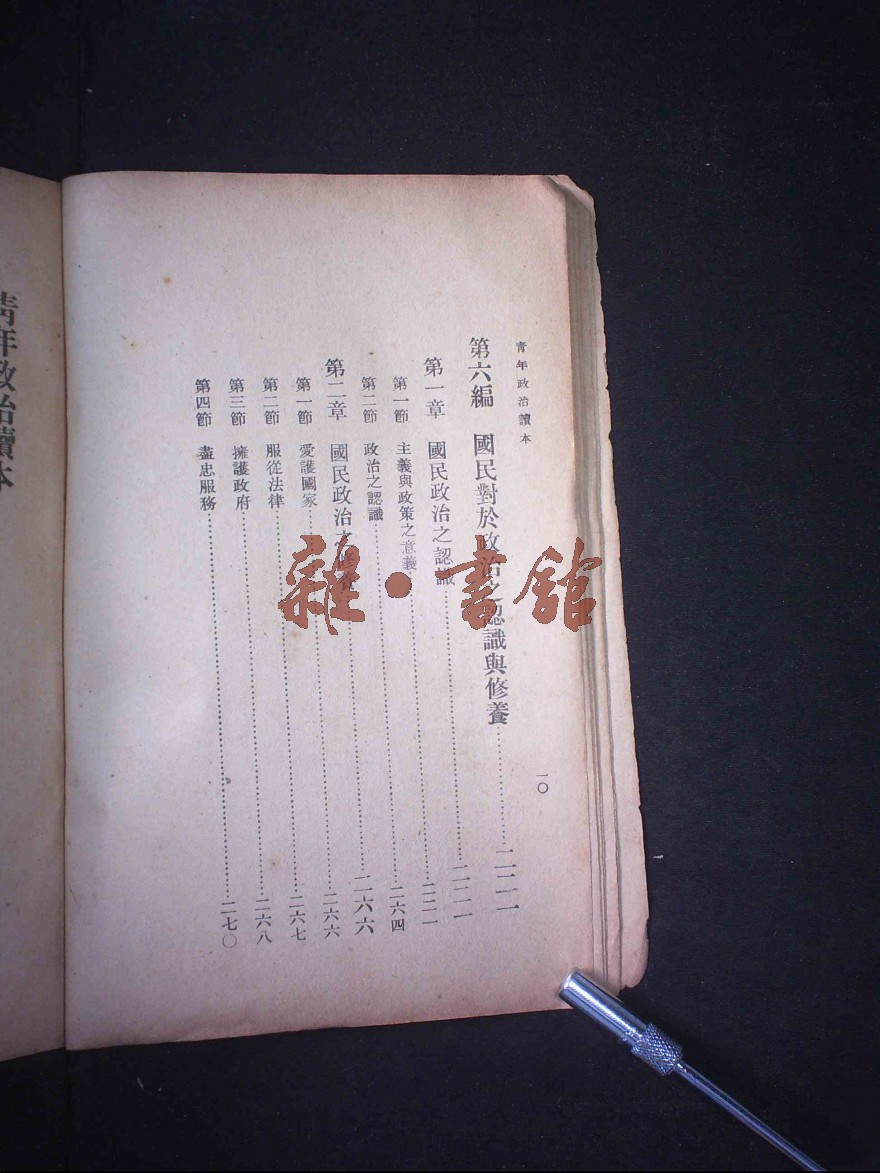 青年政治讀本
一〇
第六編 國民對於政治之認識與修養……二二一
第一章 國民政治之認識……二二一
第一節 主義與政策之意義……二二一
第二節 政治之認識……二六四
第二章 國民政治之修養……二六六
第一節 愛護國家……二六六
第二節 服從法律……二六七
第三節 擁護政府……二六八
第四節 盡忠服務……二七〇
青年政治讀本
雜·書館